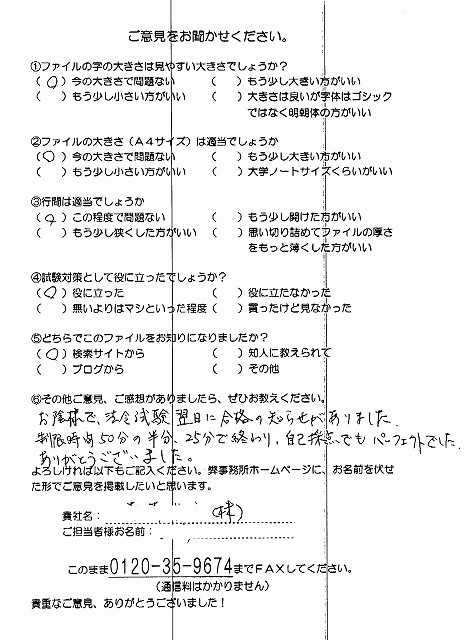 ご意見をお聞かせください。
①ファイルの字の大きさは見やすい大きさでしょうか?
(○)今の大きさで問題ない ( )もう少し大きい方がいい
( )もう少し小さい方がいい ( )大きさは良いが字体はゴシック
ではなく明朝体の方がいい
②ファイルの大きさ(A4サイズ)は適当でしょうか
(○)今の大きさで問題ない ( )もう少し大きい方がいい
( )もう少し小さい方がいい ( )大学ノートサイズくらいがいい
③行間は適当でしょうか
(○)この程度で問題ない ( )もう少し開けた方がいい
( )もう少し狭くした方がいい ( )思い切り詰めてファイルの厚さ
をもっと薄くした方がいい
④試験対策として役に立ったでしょうか?
(○)役に立った ( )役に立たなかった
( )無いよりはマシといった程度 ( )買ったけど見なかった
⑤どちらでこのファイルをお知りになりましたか?
(○)検索サイトから ( )知人に教えられて
( )ブログから ( )その他
⑥その他ご意見、ご感想がありましたら、ぜひお教えください。
お陰様で、法令試験翌日に合格の知らせがありました。
制限時間50分の半分、25分で終わり、自己採点でもパーフェクトでした。
ありがとうございました。
よろしければ以下もご記入ください。弊事務所ホームページに、お名前を伏せ
た形でご意見を掲載したいと思います。
貴社名: (株)
ご担当者様お名前:
このまま0120-35-9674までFAXしてください。
(通信料はかかりません)
貴重なご意見、ありがとうございました!